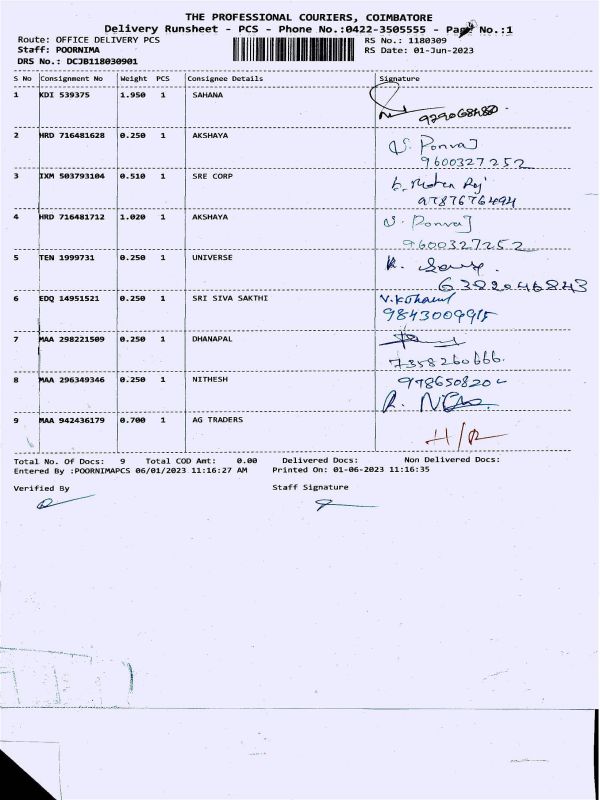 THE PROFESSIONAL COURIERS, COIMBATORE
Delivery Runsheet - PCS - Phone No.:0422-3505555 - Page No.:1
Route: OFFICE DELIVERY PCS RS No.: 1180309
Staff: POORNIMA RS Date: 01-Jun-2023
DRS No.: DCJB118030901
S No Consignment No Weight PCS Consignee Details Signature
1 KDI 539375 1.950 1 SAHANA
2 HRD 716481628 0.250 1 AKSHAYA
9600327252
3 IXM 503793104 0.510 1 SRE CORP
9787676494
4 HRD 716481712 1.020 1 AKSHAYA
9600327252
5 TEN 1999731 0.250 1 UNIVERSE
6382046843
6 EDQ 14951521 0.250 1 SRI SIVA SAKTHI
9843009915
7 MAA 298221509 0.250 1 DHANAPAL
7358260666.
8 MAA 296349346 0.250 1 NITHESH
9 MAA 942436179 0.700 1 AG TRADERS
H/R
Total No. Of Docs: 9 Total COD Amt: 0.00 Delivered Docs: Non Delivered Docs:
Entered By :POORNIMAPCS 06/01/2023 11:16:27 AM Printed On: 01-06-2023 11:16:35
Verified By Staff Signature